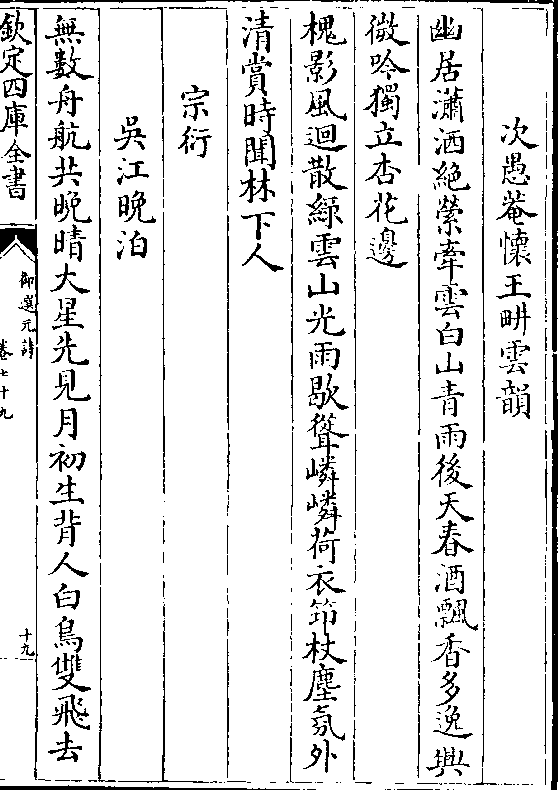 次愚菴懷王畊雲韻
幽居瀟洒絶縈牽雲白山青雨後天春酒飄香多逸興
微吟獨立杏花邊
槐影風迴散緑雲山光雨歇聳嶙嶙荷衣笻杖塵氛外
清賞時聞林下人
宗衍
吳江晚泊
無數舟航共晚晴大星先見月初生背人白鳥雙飛去
欽定四庫全書
御選元詩
卷七十九
十九